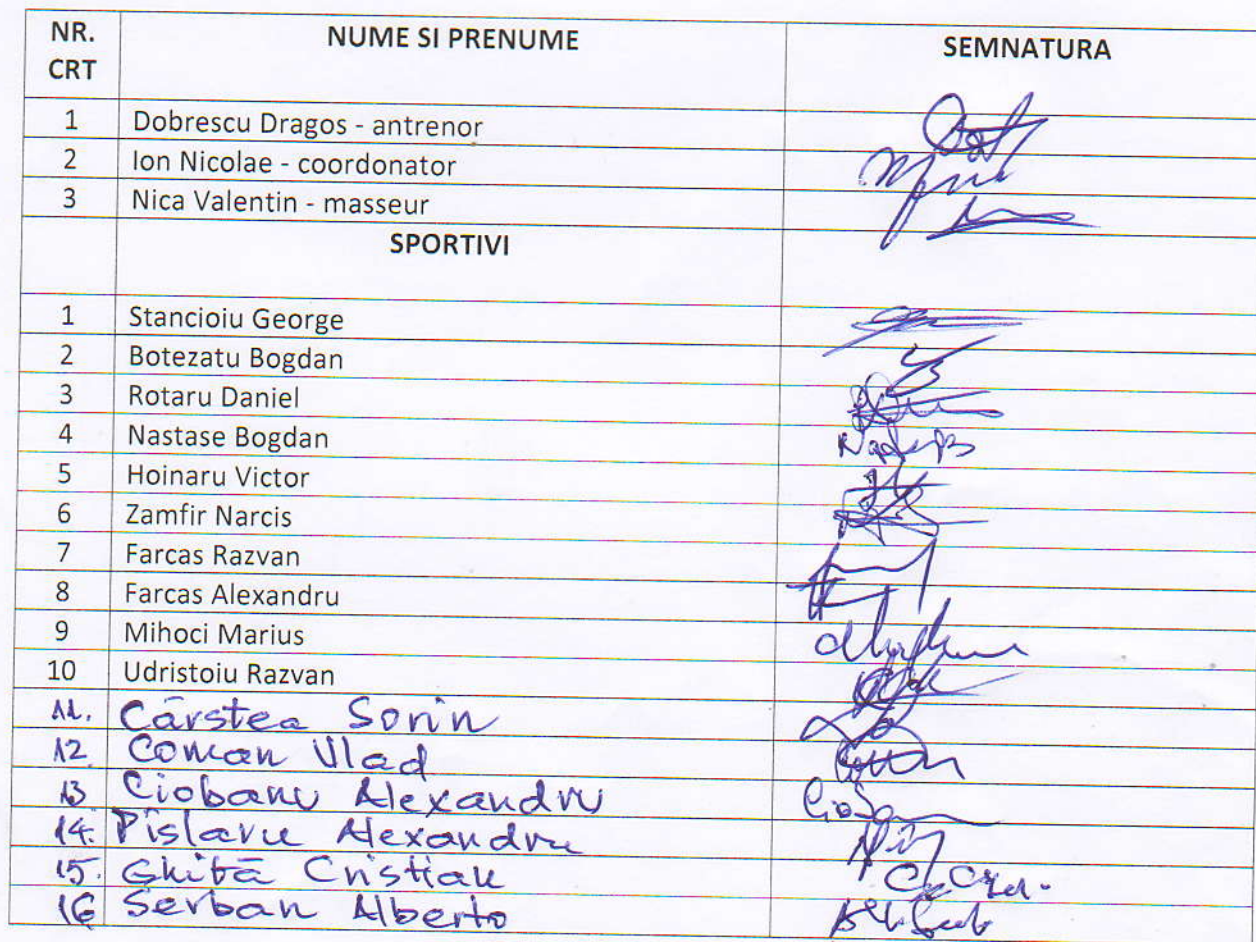 NR. CRT NUME SI PRENUME SEMNATURA
1 Dobrescu Dragos - antrenor
2 Ion Nicolae - coordonator
3 Nica Valentin - masseur
SPORTIVI
1 Stancioiu George
2 Botezatu Bogdan
3 Rotaru Daniel
4 Nastase Bogdan
5 Hoinaru Victor
6 Zamfir Narcis
7 Farcas Razvan
8 Farcas Alexandru
9 Mihoci Marius
10 Udristoiu Razvan
11. Cârstea Sorin
12 Coman Vlad
13 Ciobanu Alexandru
14. Pîslaru Alexandru
15. Ghită Cristian
16 Serban Alberto